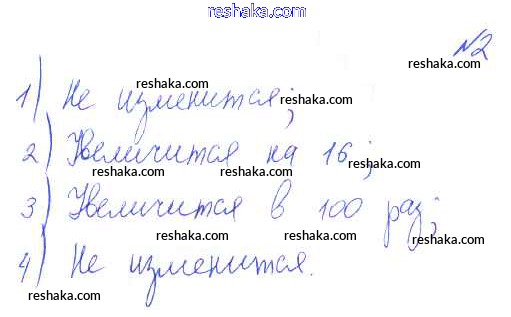 reshaka.com
№2
reshaka.com
1) Не изменится;
reshaka.com
reshaka.com
2) Увеличится на 16;
reshaka.com reshaka.com
3) Увеличится в 100 раз;
reshaka.com reshaka.com
reshaka.com
4) Не изменится.
reshaka.com
reshaka.com